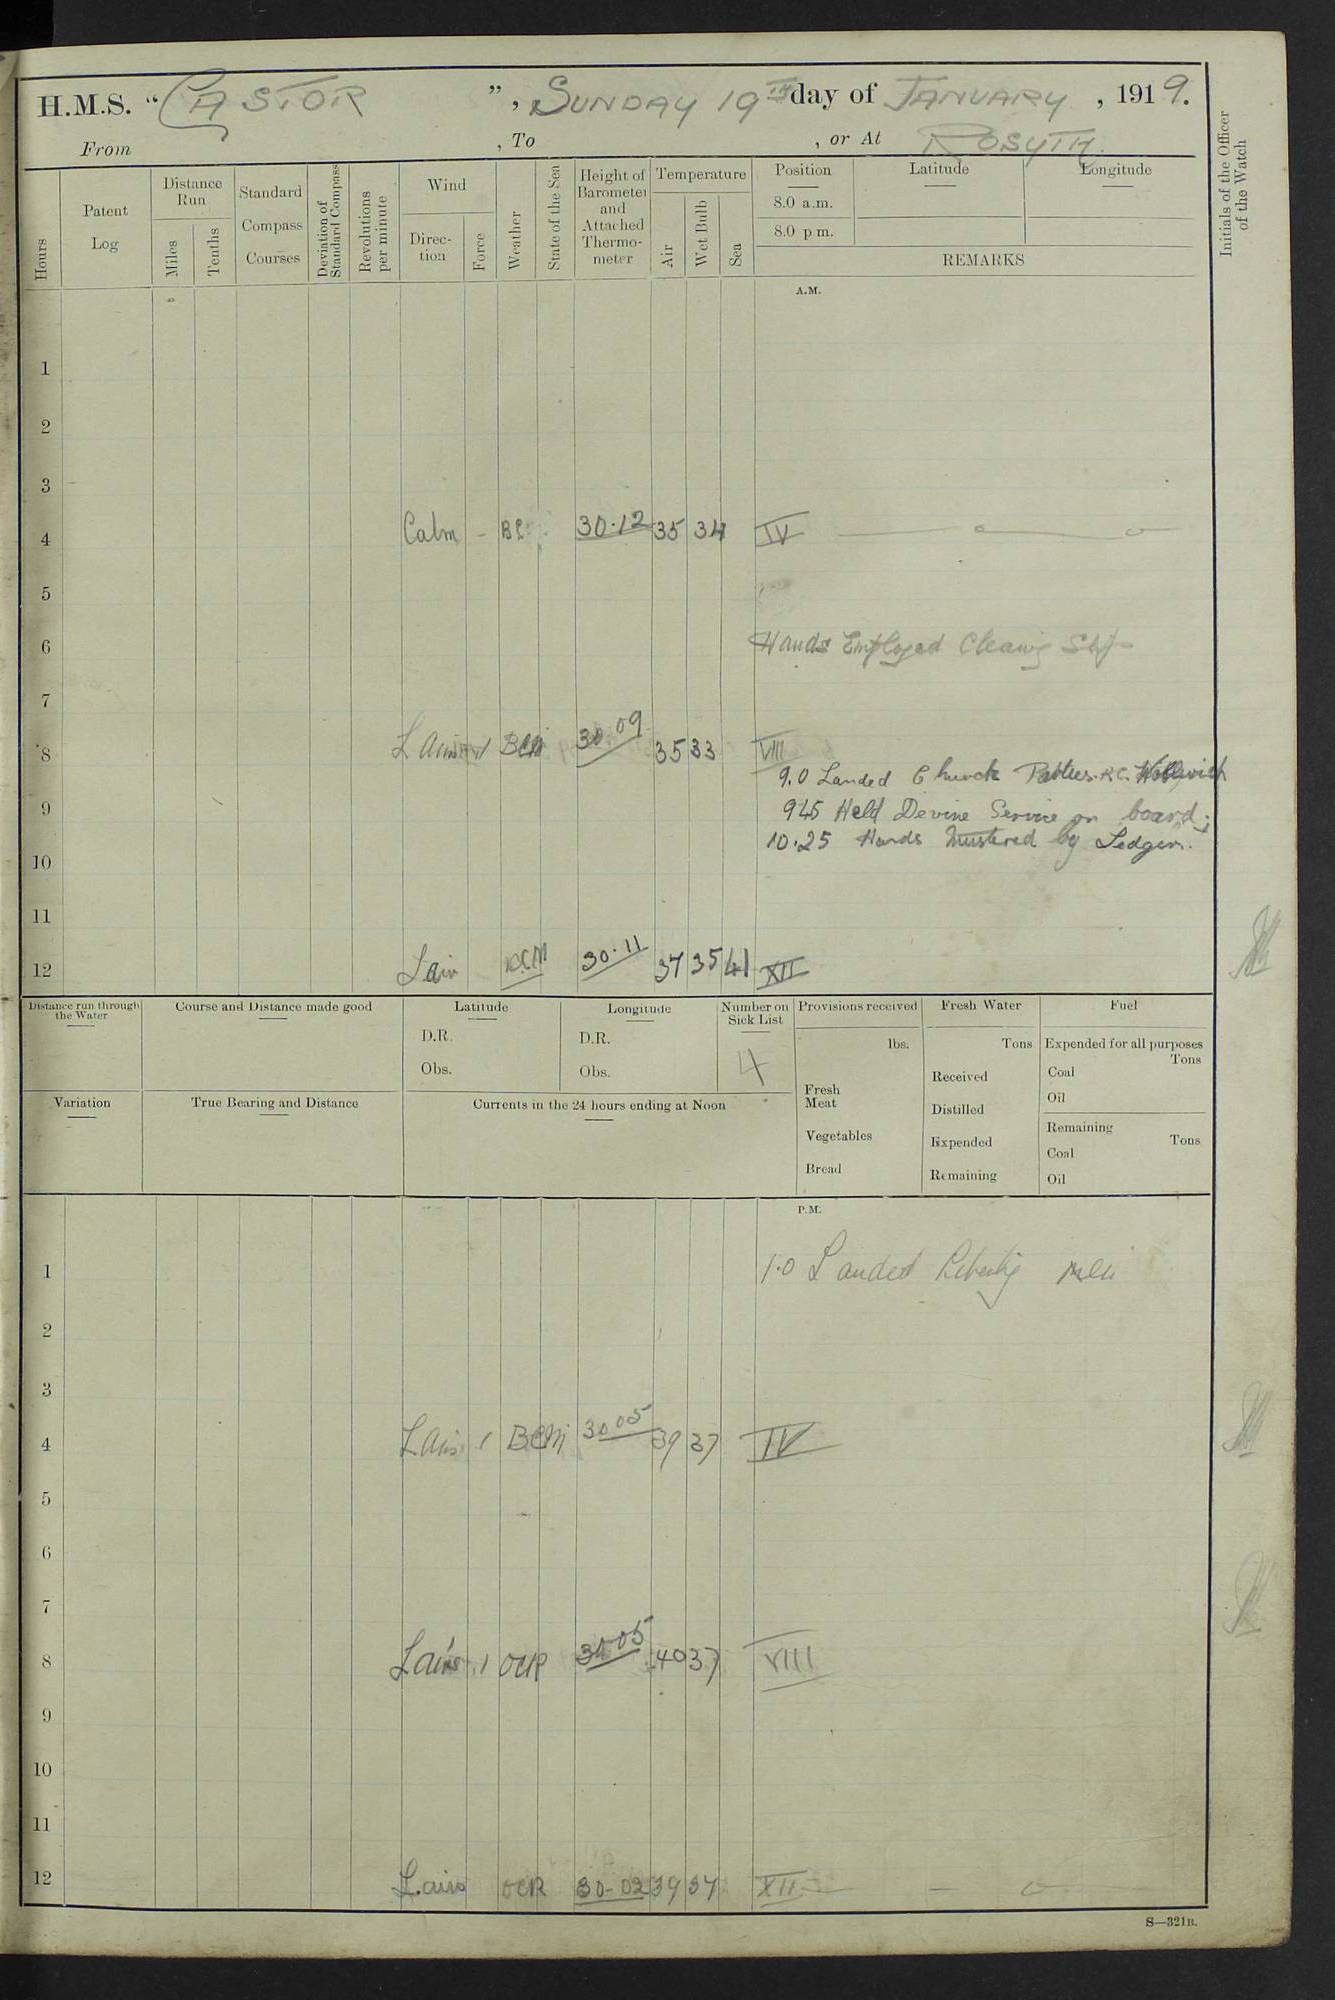 H.M.S. "CASTOR", SUNDAY 19TH day of JANUARY, 1919.
From , To , or At ROSYTH.
Hours
Patent Log
Distance Run
Miles
Tenths
Standard Compass Courses
Deviation of Standard Compass
Revolutions per minute
Wind
Direction
Force
Weather
State of the Sea
Height of Barometer and Attached Thermometer
Temperature
Air
Wet Bulb
Sea
Position
8.0 a.m.
8.0 p.m.
Latitude
Longitude
REMARKS
Initials of the Officer of the Watch
A.M.
1
2
3
4 Calm - BC 30.12 35 34 IV
5
6 Hands Employed Cleaning Ship
7
8 L Airs 1 BCM 30.09 35 33 VIII
9.0 Landed Church Parties. R.C.
9 945 Held Devine Service on board;
10.25 Hands Mustered by Ledger.
10
11
12 Lair 30.11 37 35 41 XII
Distance run through the Water
Course and Distance made good
Latitude
D.R.
Obs.
Longitude
D.R.
Obs.
Number on Sick List
4
Provisions received
lbs.
Fresh Meat
Vegetables
Bread
Fresh Water
Tons
Received
Distilled
Expended
Remaining
Fuel
Expended for all purposes
Tons
Coal
Oil
Remaining
Tons
Coal
Oil
Variation
True Bearing and Distance
Currents in the 24 hours ending at Noon
P.M.
1 1.0 Landed Liberty men
2
3
4 L Airs 1 BCM 30.05 39 37 IV
5
6
7
8 Lairs 1 OCR 30.05 40 37 VIII
9
10
11
12 L.airs OCR 30-02 39 37 XII
S—321B.